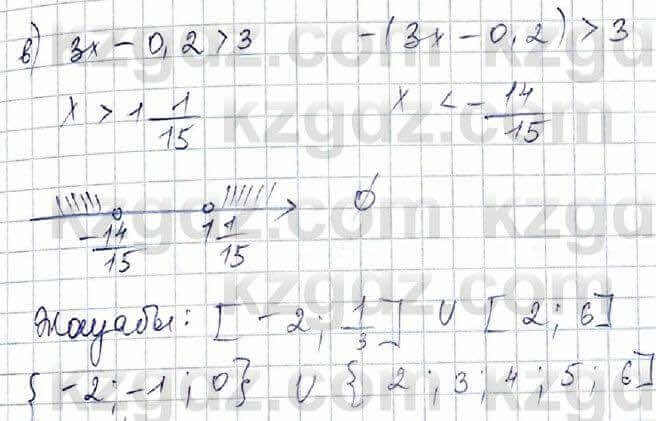 в) 3x − 0,2 > 3   −(3x − 0,2) > 3
x > 1 1/15   x < − 14/15
− 14/15   1 1/15   ∅
Жауабы: [ −2; 1/3 ] ∪ [ 2; 6 ]
{ −2; −1; 0 } ∪ { 2; 3; 4; 5; 6 ]
kzgdz.com